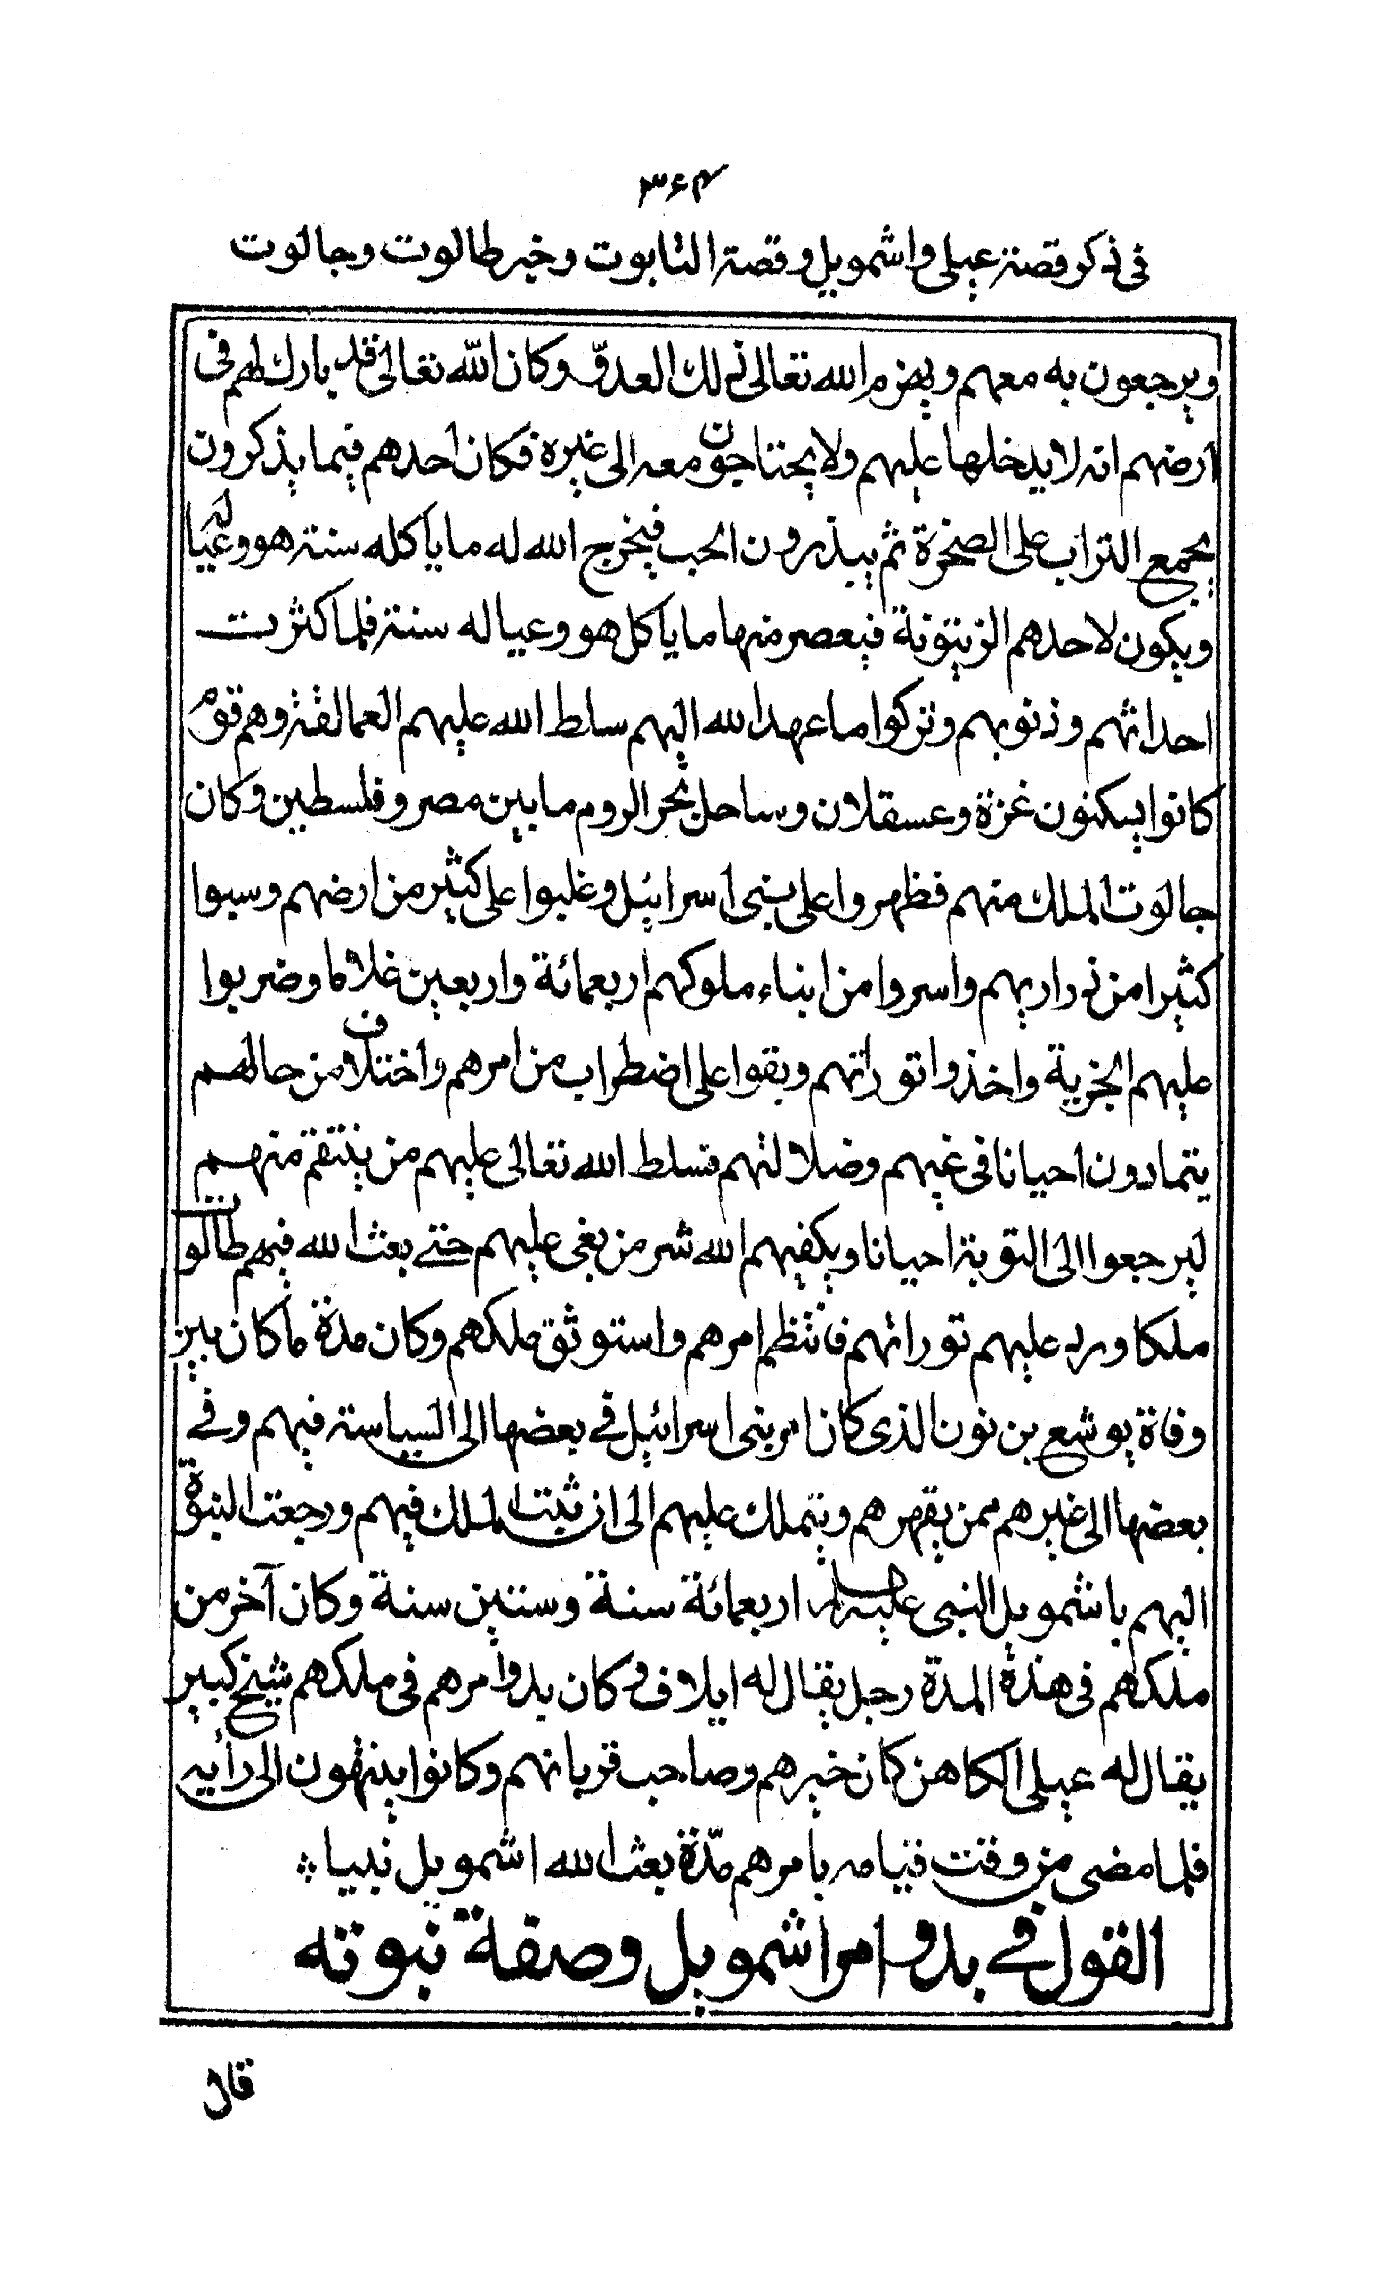 ٣٦٤
فى ذكر قصة عيلى واشمويل وقصة التابوت وخبر طالوت وجالوت
ويرجعون به معهم ويهزم الله تعالى ذلك العدوّ وكان الله تعالى قد بارك لهم فى
ارضهم انه لا يدخلها عليهم ولا يحتاجون معه الى غيره فكان احدهم فيما يذكرون
يجمع التراب على الصخرة ثم يبذرون الحب فيخرج الله له ما ياكله سنة هو وعياله
ويكون لاحدهم الزيتونة فيعصر منها ما ياكل هو وعياله سنة فلما كثرت
احداثهم وذنوبهم وتركوا ما عهد الله اليهم سلط الله عليهم العمالقة وهم قوم
كانوا يسكنون غزة وعسقلان وساحل بحر الروم ما بين مصر وفلسطين وكان
جالوت الملك منهم فظهروا على بنى اسرائيل وغلبوا على كثير من ارضهم وسبوا
كثيرا من ذراريهم واسروا من ابناء ملوكهم اربعمائة واربعين غلاما وضربوا
عليهم الجزية واخذوا توراتهم وبقوا على اضطراب من امرهم واختلاف من حالهم
يتمادون احيانا فى غيهم وضلالتهم فسلط الله تعالى عليهم من ينتقم منهم
ليرجعوا الى التوبة احيانا ويكفيهم الله شر من بغى عليهم حتى بعث الله فيهم طالوت
ملكا ورد عليهم توراتهم فانتظم امرهم واستوثق ملكهم وكان مدة ما كان بين
وفاة يوشع بن نون الذى كان امر بنى اسرائيل فى بعضها الى السياسة فيهم وفى
بعضها الى غيرهم ممن يقهرهم ويتملك عليهم الى ان ثبت الملك فيهم ورجعت النبوة
اليهم باشمويل النبى عليه السلام اربعمائة سنة وستين سنة وكان آخر من
ملكهم فى هذه المدة رجل يقال له ايلاف وكان بدو امرهم فى ملكهم شيخ كبير
يقال له عيلى الكاهن كان خبرهم وصاحب قربانهم وكانوا ينتهون الى رأيه
فلما مضى من وقت قيامه بامرهم مدّة بعث الله اشمويل نبيا
القول فى بدو امر اشمويل وصفة نبوته
قال